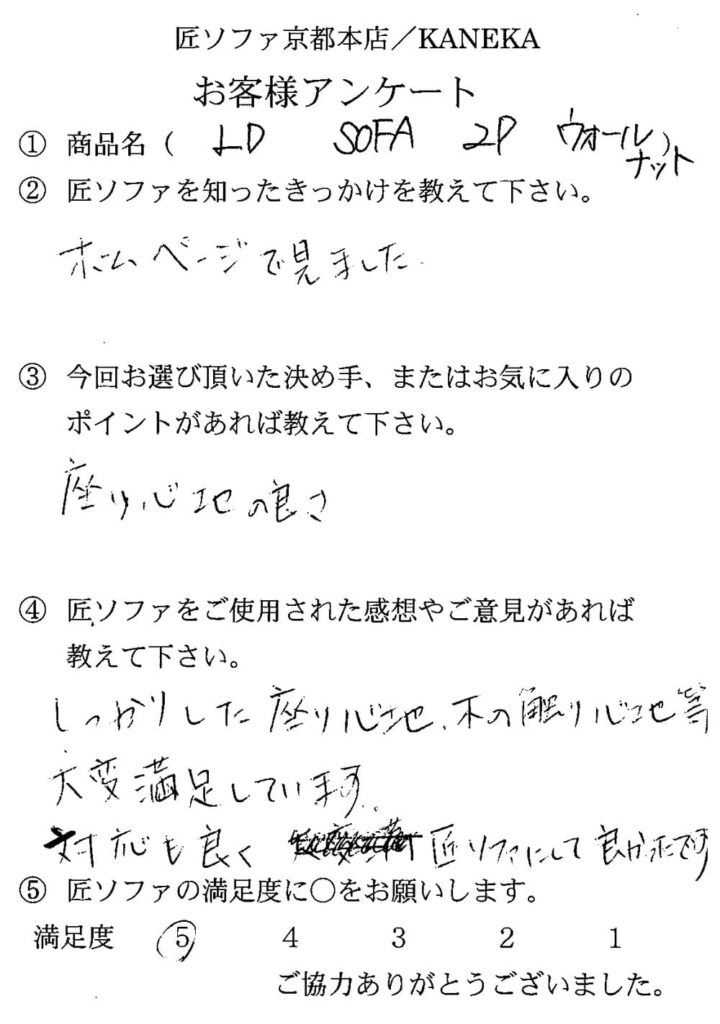 匠ソファ京都本店／KANEKA
お客様アンケート
① 商品名（ LD SOFA 2P ウォールナット）
② 匠ソファを知ったきっかけを教えて下さい。
ホームページで見ました
③ 今回お選び頂いた決め手、またはお気に入りの
ポイントがあれば教えて下さい。
座り心地の良さ
④ 匠ソファをご使用された感想やご意見があれば
教えて下さい。
しっかりした座り心地、木の触り心地等
大変満足しています。
対応も良く 匠ソファにして良かったです
⑤ 匠ソファの満足度に○をお願いします。
満足度 5 4 3 2 1
ご協力ありがとうございました。